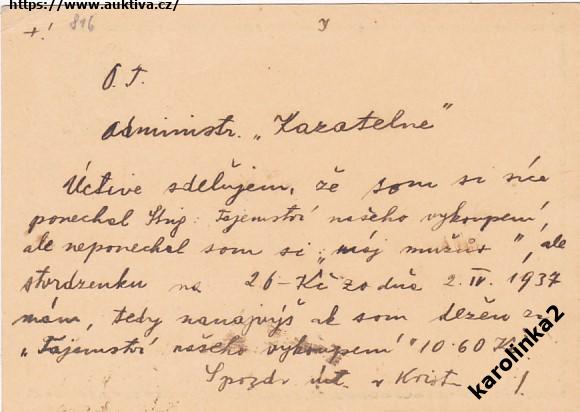 https://www.auktiva.cz/
+! 816
O. T.
Administr. „Kazatelne"
Úctive sdělujem, že som si síce
ponechal Tajemství našeho vykoupení,
ale neponechal som si „máj mužův", ale
stvrdzenku na 26-Kč zo dňa 2. IV. 1937
mám, tedy nanajvýš ak som dlžen za
„Tajemství našeho vykoupení" 10·60 Kč
S pozdr. úct. v Krist !
karolinka2